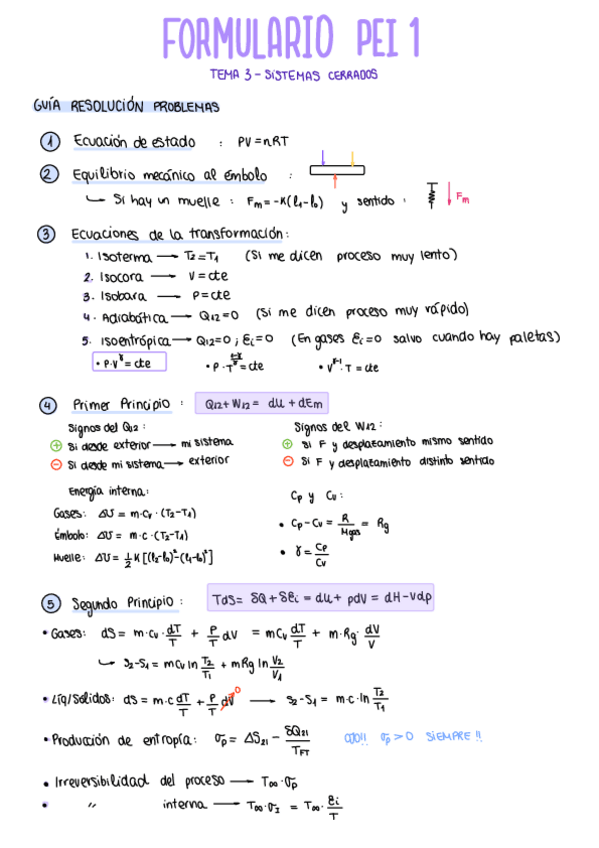 FORMULARIO PEI 1
TEMA 3 - SISTEMAS CERRADOS
GUÍA RESOLUCIÓN PROBLEMAS
① Ecuación de estado : PV = nRT
② Equilibrio mecánico al émbolo :
↳ Si hay un muelle : Fm = -K(l₁-l₀) y sentido : Fm
③ Ecuaciones de la transformación:
1. Isoterma → T₂=T₁ (Si me dicen proceso muy lento)
2. Isocora → V = cte
3. Isobara → P = cte
4. Adiabática → Q₁₂=0 (Si me dicen proceso muy rápido)
5. Isoentrópica → Q₁₂=0 ; Ɛi=0 (En gases Ɛi=0 salvo cuando hay paletas)
• P·V^γ = cte • P·T^((1-γ)/γ) = cte • V^(γ-1)·T = cte
④ Primer Principio : Q₁₂ + W₁₂ = dU + dEm
Signos del Q₁₂ : Signos del W₁₂ :
⊕ Si desde exterior → mi sistema ⊕ Si F y desplazamiento mismo sentido
⊖ Si desde mi sistema → exterior ⊖ Si F y desplazamiento distinto sentido
Energía interna: Cp y Cv :
Gases: ΔU = m·Cv·(T₂-T₁)
• Cp - Cv = R/Mgas = Rg
Émbolo: ΔU = m·C·(T₂-T₁)
• γ = Cp/Cv
Muelle: ΔU = 1/2 K [(l₂-l₀)²-(l₁-l₀)²]
⑤ Segundo Principio : TdS = δQ + δƐi = dU + pdV = dH - Vdp
• Gases: dS = m·Cv·dT/T + P/T dV = mCv dT/T + m·Rg·dV/V
↳ S₂-S₁ = mCv ln T₂/T₁ + mRg ln V₂/V₁
• Líq/Sólidos: dS = m·C dT/T + P/T dV → 0 → S₂-S₁ = m·C·ln T₂/T₁
• Producción de entropía: σp = ΔS₂₁ - δQ₂₁/TFT OJO!! σp > 0 SIEMPRE!!
• Irreversibilidad del proceso → T∞·σp
• " interna → T∞·σI = T∞·Ɛi/T